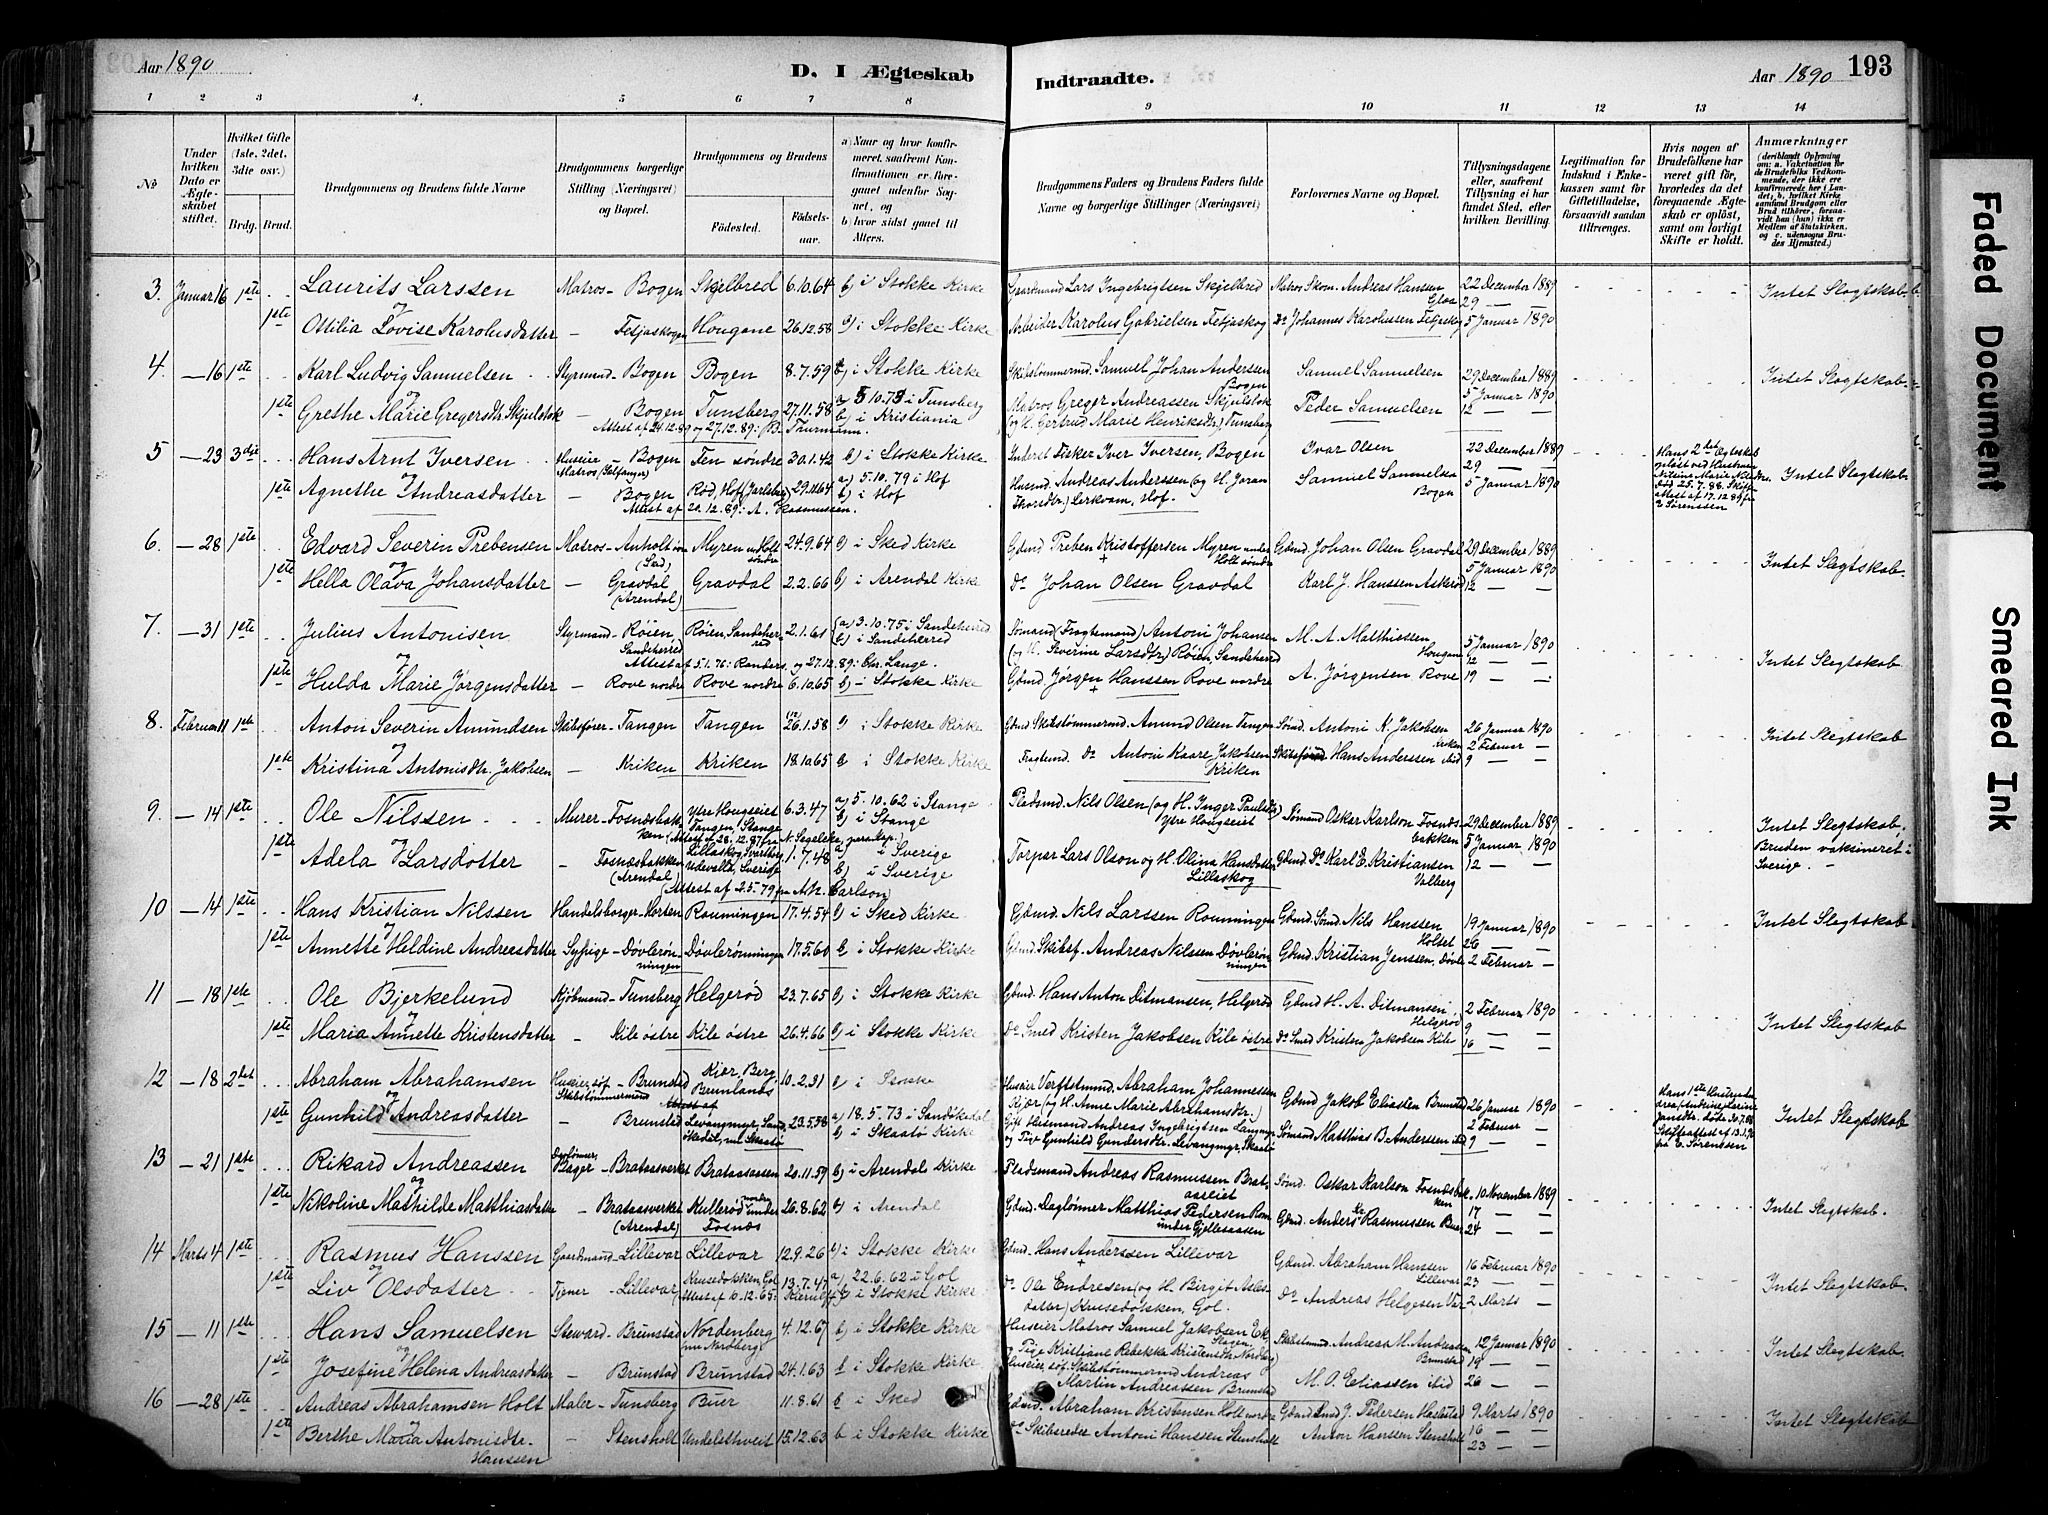 Aar 1890
D. I Ægteskab Indtraadte.
Aar 1890 193
1 2 3 4. 5 6 7 8 9 10 11 12 13 14
No
Under hvilken Dato er Ægteskabet stiftet.
Hvilket Gifte (1ste, 2det, 3dte osv.)
Brdg. Brud.
Brudgommens og Brudens fulde Navne
Brudgommens borgerlige Stilling (Næringsvei) og Bopæl.
Brudgommens og Brudens
Fødested.
Fødselsaar.
a) Naar og hvor konfirmeret, saafremt Konfirmationen er foregaaet udenfor Sognet, og
b) hvor sidst gaaet til Alters.
Brudgommens Faders og Brudens Faders fulde Navne og borgerlige Stillinger (Næringsvei)
Forlovernes Navne og Bopæl.
Tillysningsdagene eller, saafremt Tillysning ei har fundet Sted, efter hvilken Bevilling.
Legitimation for Indskud i Enkekassen samt for Giftetilladelse, forsaavidt saadan tiltrænges.
Hvis nogen af Brudefolkene har været gift før, hvorledes da det foregaaende Ægteskab er opløst, samt om lovligt Skifte er holdt.
Anmærkninger
(deriblandt Oplysning om: a. Vakcination for de Brudefolks Vedkommende, der ikke ere konfirmerede her i Landet; b. hvilket Kirkesamfund Brudgom eller Brud tilhører, forsaavidt han (hun) ikke er Medlem af Statskirken, og c. udensogns Brudes Hjemsted.)
3. Januar 16 1ste Laurits Larssen Matros - Bogen Skjelbred 6.10.64 b) i Stokke Kirke Gaardmand Lars Ingebrigtsen Skjelbred Matros Skom. Andreas Hanssen 22 December 1889 Intet Slegtskab
og
Glas 29 —
1ste Ottilia Lovise Karolusdatter - Fetjaskogen Hougane 26.12.58 b) i Stokke Kirke Arbeider Karolus Gabrielsen Fetjaskog Do Johannes Karolussen Fetjaskog 5 Januar 1890
4. — 16 1ste Karl Ludvig Samuelsen Styrmand - Bogen Bogen 8.7.59 b) i Stokke Kirke Skibstømmermd. Samuel Johan Anderssen Bogen Samuel Samuelsen 29 December 1889 Intet Slegtskab
og
5 Januar 1890
1ste Grethe Marie Gregersdtr. Skjulstok - Bogen Tunsberg 27.11.58 a) 5.10.73 i Tunsberg b) i Kristiania Matros Greger Andreassen Skjulstok (og H. Gertrud Marie Henriksdtr.) Tunsberg Peder Samuelsen 12 — —
Attest af 24.12.89 og 27.12.89: B. Thurmann.
5 — 23 3die Hans Arnt Iversen Huseier Matros (Selfanger) - Bogen Fen søndre 30.1.42 b) i Stokke Kirke Inderst Fisker Iver Iversen, Bogen Ivar Olsen 22 December 1889 Hans 2det Ægteskab opløst ved Hustruen Marie død 25.7.88. Skifteattest af 17.12.89 fra E. Sørenssen Intet Slegtskab
og
29 —
1ste Agnethe Andreasdatter - Bogen Rød, Hof (Jarlsberg) 29.11.64 a) 5.10.79 i Hof b) i Hof Husmd. Andreas Anderssen (og H. Joran Thorsdtr.) Lerkvam, Hof. Samuel Samuelsen Bogen 5 Januar 1890
Attest af 20.12.89: A. Rasmussen.
6. — 28 1ste Edvard Severin Prebensen Matros - Anholt (Sked) Myren un. Holt søndre 24.9.64 b) i Sked Kirke Gdmd. Preben Kristoffersen Myren under Holt søndre Gdmd. Johan Olsen Gravdal 29 December 1889 Intet Slegtskab
og
5 Januar 1890
1ste Hella Olava Johansdatter - Gravdal (Arendal) Gravdal 2.2.66 b) i Arendal Kirke Do Johan Olsen Gravdal Karl J. Hanssen Askerød 12 — —
7. — 31 1ste Julius Antonisen Styrmand - Røien, Sandeherred Røien, Sandeherred 2.1.61 a) 3.10.75 i Sandeherred b) i Sandeherred Sømand (Fragtemand) Antoni Johansen (og H. Severine Larsdtr.) Røien, Sandeherred M. A. Matthiessen Hougane 5 Januar 1890 Intet Slegtskab
og Attest af 5.1.76: Randers, og 27.12.89: Chr. Lange.
12 — —
1ste Hulda Marie Jørgensdatter - Rove nordre Rove nordre 6.10.65 b) - Stokke Kirke Gdmd. Jørgen Hanssen Rove nordre A. Jørgensen Rove 19 — —
8. Februar 11 1ste Anton Severin Amundsen Skibsfører - Tangen Tangen 26.1.58 b) i Stokke Kirke Gdmd. Skibstømmermd. Amund Olsen Tangen Sømd. Antoni K. Jakobsen Kriken 26 Januar 1890 Intet Slegtskab
og
2 Februar —
1ste Kristina Antonisdtr. Jakobsen - Kriken Kriken 18.10.65 b i Stokke Kirke Fragtemd. Do Antoni Kaare Jakobsen Kriken Skibsfører Hans Anderssen ibid 9 — —
9. — 14 1ste Ole Nilssen Murer - Fosnæsbakken Ytre Hougseiet Tangen, Stange 6.3.47 a) 5.10.62 i Stange b) i Stange Pladsmd. Nils Olsen (og H. Inger Paulsdtr.) Ytre Hougseiet Sømand Oskar Karlson Fosnæsbakken 29 December 1889 Intet Slegtskab.
og (Attest af 28.12.87 fra N. Segelcke,)
5 Januar 1890 Bruden vaksineret i Sverige.
1ste Adela Larsdotter - Fosnæsbakken (Arendal) Lillaskog, Udevalla, Sverige 1.7.48 a) i Sverige b) i Sverige Torpar Lars Olson og H. Olina Hansdotter Lillaskog Gdmd. Do Karl E. Kristiansen Valberg 12 — —
(Attest af 2.5.79 fra Carlson)
10 — 14 1ste Hans Kristian Nilssen Handelsborger - Horten Rouningen 17.4.54 b) i Sked Kirke Gdmd. Nils Larssen Rouningen Gdmd. Sømd. Nils Hanssen Holtet 19 Januar 1890 Intet Slegtskab
og
26 — —
1ste Annette Heldine Andreasdatter Sypige - Døvlerønningen Døvlerønningen 17.5.60 b i Stokke Kirke Gdmd. Skibsf. Andreas Nilssen Døvlerønningen Gdmd. Kristian Jenssen, Døvle 2 Februar —
11 — 18 1ste Ole Bjerkelund Kjøbmand - Tunsberg Helgerød 23.7.65 b) i Stokke Kirke Gdmd. Hans Anton Ditmansen, Helgerød Gdmd H. A. Ditmansen Helgerød 2 Februar 1890 Intet Slegtskab
og
9 — —
1ste Maria Annette Kristensdatter - Kile østre Kile østre 26.4.66 b) i Stokke Kirke Do Smed Kristen Jakobsen Kile østre Do Smed Kristen Jakobsen Kile 16 — —
12 — 18 2det Abraham Abrahamsen Huseier Skibstømmermand - Brunstad Kjær, Berg, Brunlanæs 10.2.31 b) i Stokke Huseier Verftstmmd. Abraham Johannessen Kjær (og H. Anne Marie Abrahamsdtr.) Gdmd Jakob Eliassen Brunstad 26 Januar 1890 Hans 1ste Hustru døde Skifteattest af fra E. Sørenssen Intet Slegtskab
og
2 Februar —
1ste Gunhild Andreasdatter - Brunstad Levangmyr, Sandøkedal, nu Skaatø 23.5.58 a) 18.5.73 i Sandøkedal b) i Skaatø Kirke Gift Husmand Andreas Ingebrigtsen Langmyr og Pige Gunhild Gundersdtr. Levangmyr, Skaatø Sømand Matthias B. Anderssen ibid 9 — —
13 — 21 1ste Rikard Andreassen Bager - Brataasverket Brataasaasen 20.11.59 b) i Arendals Kirke Pladsmand Andreas Rasmussen Brataaseiet Sømd. Oskar Karlson Fosnæsbakken 10 November 1889 Intet Slegtskab.
og
17 — —
1ste Nikoline Mathilde Matthiasdatter - Brataasverket (Arendal) Kullerød nordre under Fosnæs 26.8.62 b) i Arendal Gdmd. Daglønner Matthias Pedersen Rom under Gjellesaasen Gdmd. Anders Rasmussen Buer 24 — —
14 Marts 4 1ste Rasmus Hanssen Gaardmand - Lillevar Lillevar 12.9.26 b) i Stokke Kirke Gdmd. Hans Anderssen Lillevar Gdmd. Abraham Hanssen Lillevar 16 Februar 1890 Intet Slegtskab
og
23 — —
1ste Liv Olsdatter Tjener - Lillevar Krusedokken, Gol 13.7.47 a) 22.6.62 i Gol b) i Stokke Kirke Do Ole Endresen (og H. Birgit Aslesdatter) Krusedokken, Gol. Do Andreas Helgesen Var 2 Marts —
(Attest af 10.12.65: Kierulf)
15 — 11 1ste Hans Samuelsen Steward - Brunstad Nordenberg nu Nordberg 4.12.67 b) i Stokke Kirke Huseier Matros Samuel Jakobsen Ek, Slagen og Pige Kristiane Rebekka Kristensdtr. Nordberg) Skibstmmd. Andreas M. Andreassen Brunstad 12 Januar 1890 Intet Slegtskab
og
19 — —
1ste Josefine Helena Andreasdatter - Brunstad Brunstad 24.1.63 b i Stokke Kirke Huseier Skibstømmermd Andreas Martin Andreassen Brunstad M. O. Eliassen ibid 26 — —
16 — 28 1ste Andreas Abrahamsen Holt Maler - Tunsberg Buer 11.8.61 b i Sked Gdmd. Abraham Kristensen Holt nordre Gdmd Smed J. Pedersen Haslestad 9 Marts 1890 Intet Slegtskab
og
16 — —
1ste Berthe Maria Antonisdtr. Hanssen - Stensholt Undelsthveit 15.12.63 b i Stokke Kirke Do Skibsreder Antoni Hanssen Stensholt Anton Hanssen Stensholt 23 — —
Faded Document
Smeared Ink